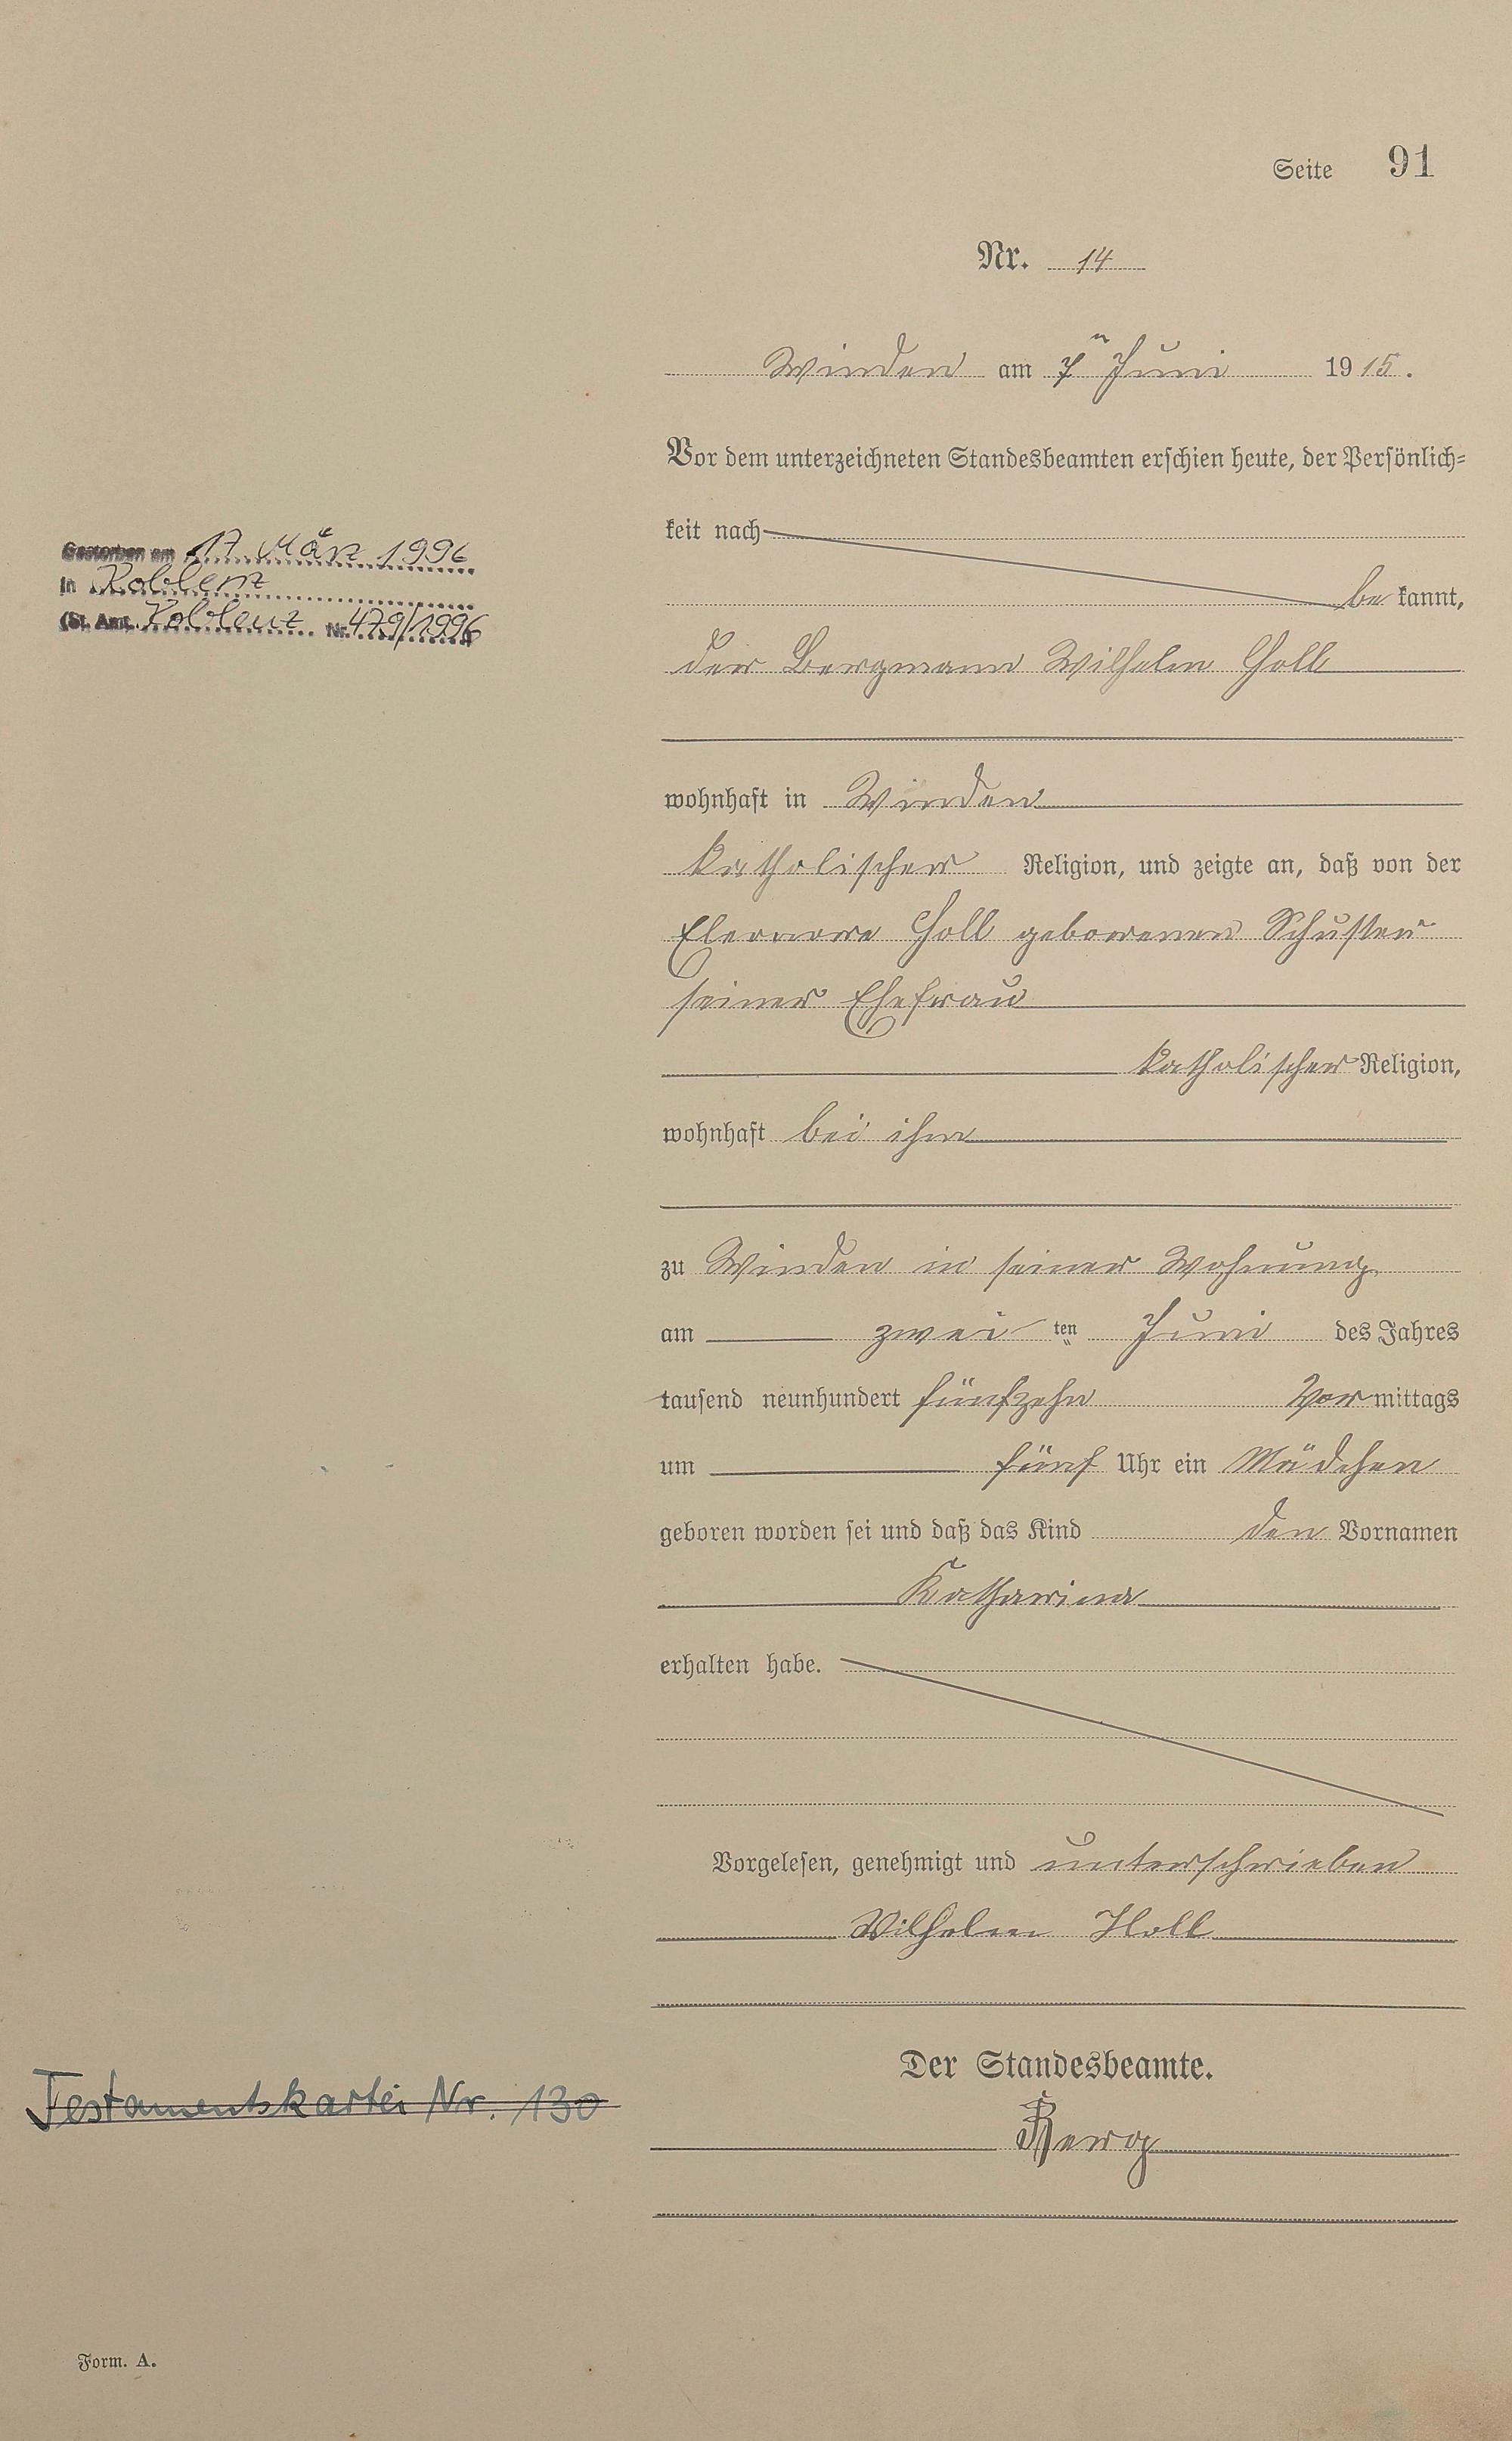 Seite 91
Nr. 14
Winden am 7ᵗᵉⁿ Juni 1915.
Vor dem unterzeichneten Standesbeamten erschien heute, der Persönlich-
keit nach
bekannt,
der Bergmann Wilhelm Holl
wohnhaft in Winden
katholischer Religion, und zeigte an, daß von der
Eleonore Holl geborenen Schuster
seiner Ehefrau
katholischer Religion,
wohnhaft bei ihm
zu Winden in seiner Wohnung
am zwei ten Juni des Jahres
tausend neunhundert fünfzehn Vormittags
um fünf Uhr ein Mädchen
geboren worden sei und daß das Kind den Vornamen
Katharina
erhalten habe.
Vorgelesen, genehmigt und unterschrieben
Wilhelm Holl
Der Standesbeamte.
Berg
Gestorben am 17 März 1996
in Koblenz
(St. Amt. Koblenz Nr. 479/1996
Testamentskartei Nr. 130
Form. A.